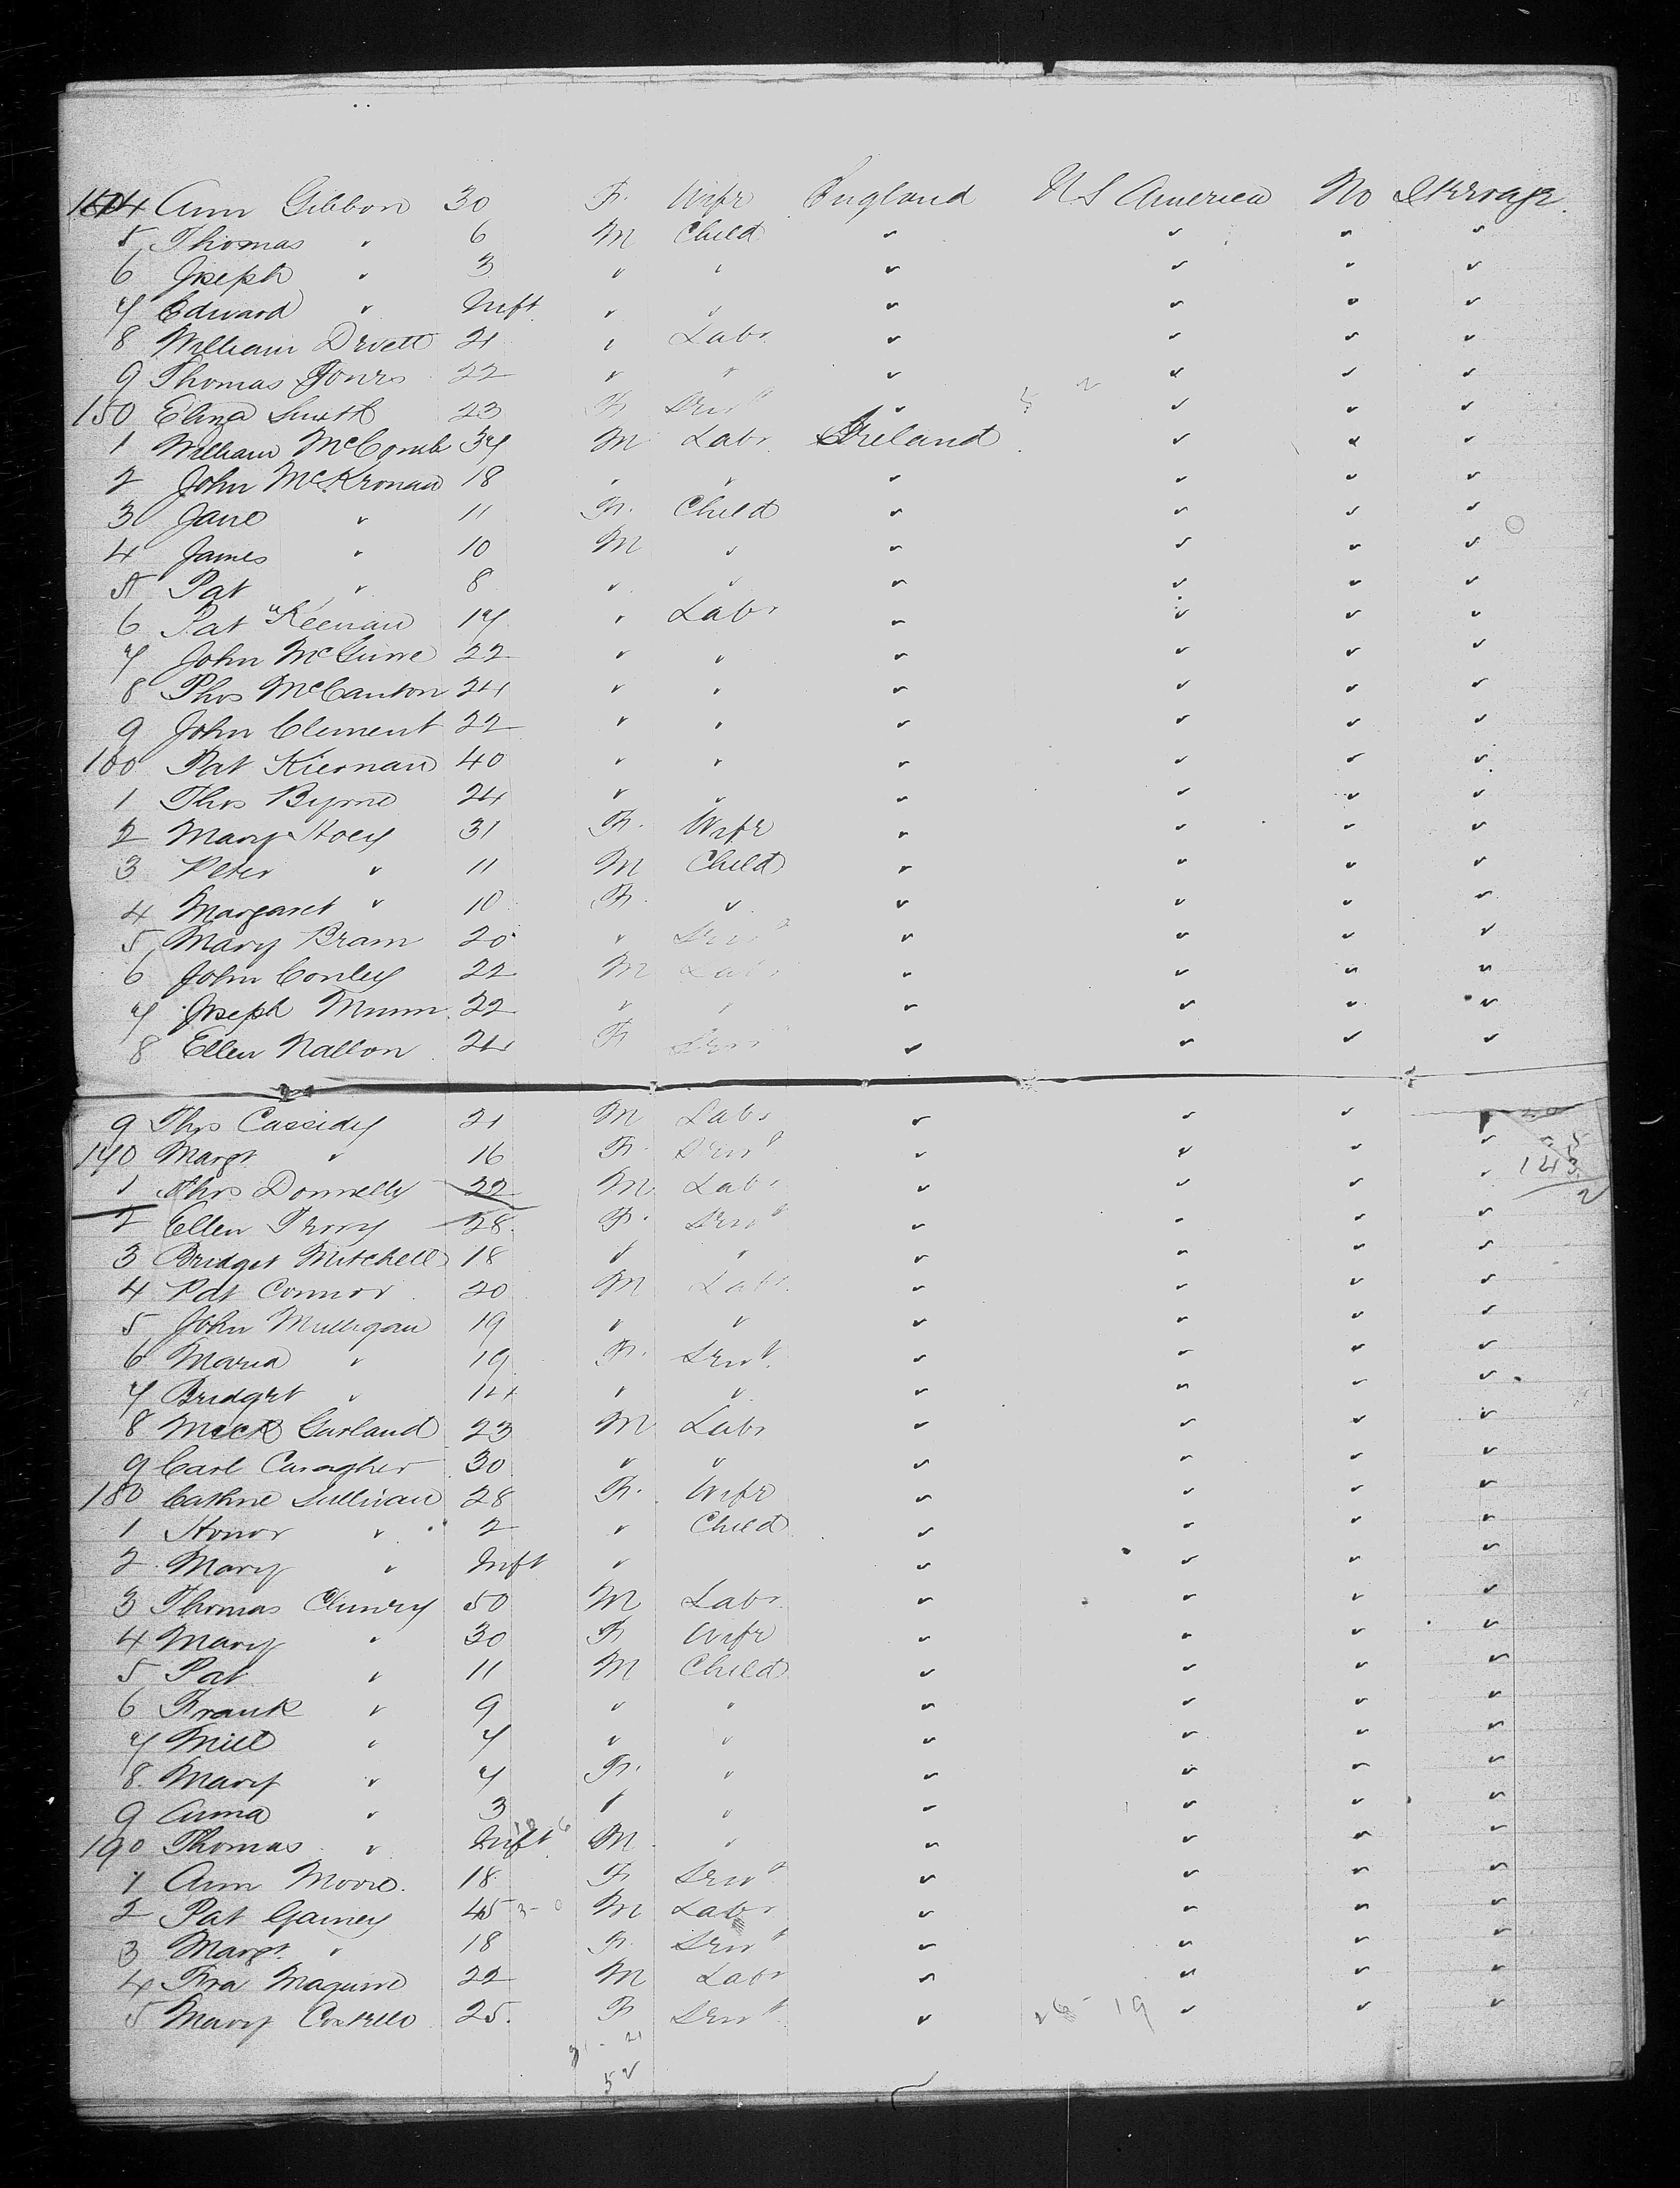 144 Ann Gibbon 30 F. Wife England U S America No Steerage
5 Thomas " 6 M Child " " " "
6 Joseph " 3 " " " " " "
7 Edward " Inft " " " " " "
8 William 21 " Labr " " " "
9 Thomas Jones 22 " " " " " "
150 Eliza Smith 23 F Servt " " " "
1 William McComb 37 M Labr Ireland " " "
2 John McKronan 18 " " " " " "
3 Jane " 11 F. Child " " " "
4 James " 10 M " " " " "
5 Pat " 8 " " " " " "
6 Pat Keenan 17 " Labr " " " "
7 John McGuire 22 " " " " " "
8 Thos McCanton 24 " " " " " "
9 John Clement 22 " " " " " "
160 Pat Kiernan 40 " " " " " "
1 Thos Byrne 24 " " " " " "
2 Mary Hoey 31 F. Wife " " " "
3 Peter " 11 M Child " " " "
4 Margaret " 10 F. " " " " "
5 Mary Bram 20 " Servt " " " "
6 John Conley 22 M Labr " " " "
7 Joseph Munn 22 " " " " " "
8 Ellen Nallon 24 F Servt " " " "
9 Thos Cassidy 21 M Labr " " " "
170 Margt " 16 F. Servt " " " "
1 Thos Donnelly 22 M Labr " " " "
2 Ellen 28 F. Servt " " " "
3 Bridget Mitchell 18 " " " " " "
4 Pat Connor 20 M Labr " " " "
5 John Mulligan 19 " " " " " "
6 Maria " 19 F. Servt " " " "
7 Bridget " 14 " " " " " "
8 Mick Garland 23 M Labr " " " "
9 Carl Caragher 30 " " " " " "
180 Cathne Sullivan 28 F. Wife " " " "
1 Honor " 2 " Child " " " "
2 Mary " Inft " " " " "
3 Thomas 50 M Labr " " " "
4 Mary " 30 F Wife " " " "
5 Pat " 11 M Child " " " "
6 Frank " 9 " " " " " "
7 " 7 " " " " " "
8 Mary " 7 F. " " " " "
9 Anna " 3 " " " " " "
190 Thomas " Inft M " " " " "
1 Ann Moore 18 F Servt " " " "
2 Pat Gainey 45 M Labr " " " "
3 Margt " 18 F. Servt " " " "
4 Fra Maguire 22 M Labr " " " "
5 Mary Costello 25 F Servt " " " "
52